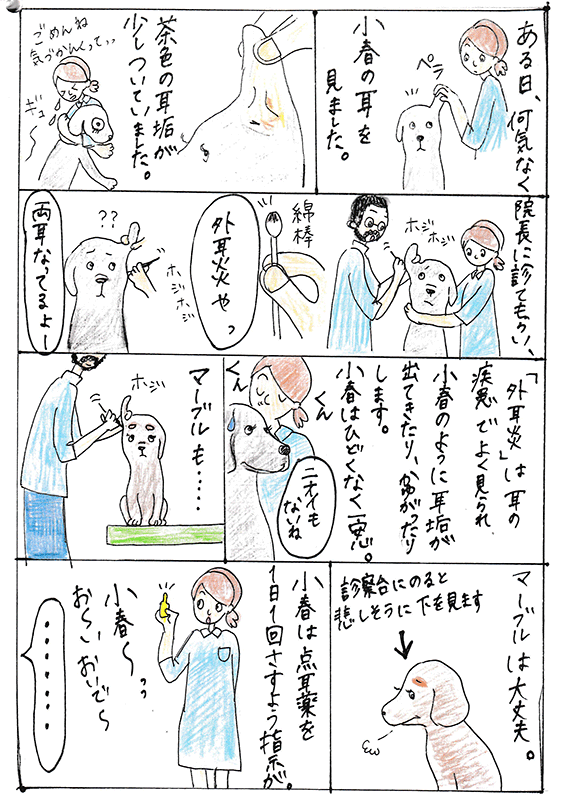 ある日、何気なく
小春の耳を
見ました。
ペラ
茶色の耳垢が
少しついていました。
ごめんね
気づかんくってッッ
ギュ〜
院長に診てもらい、
ホジ
ホジ
綿棒
外耳炎やっ
??
ホジ
ホジ
両耳なってるよー
「外耳炎」は耳の
疾患でよく見られ
小春のように耳垢が
出てきたり、かゆがったり
します。
小春はひどくなく一安心。
くん
くん
ニオイも
ないね
マーブルも・・・・
ホジ
マーブルは大丈夫。
診察台にのると
悲しそうに下を見ます
小春は点耳薬を
1日1回さすよう指示が。
小春〜ッッ
お〜いおいで〜
・・・・・・・